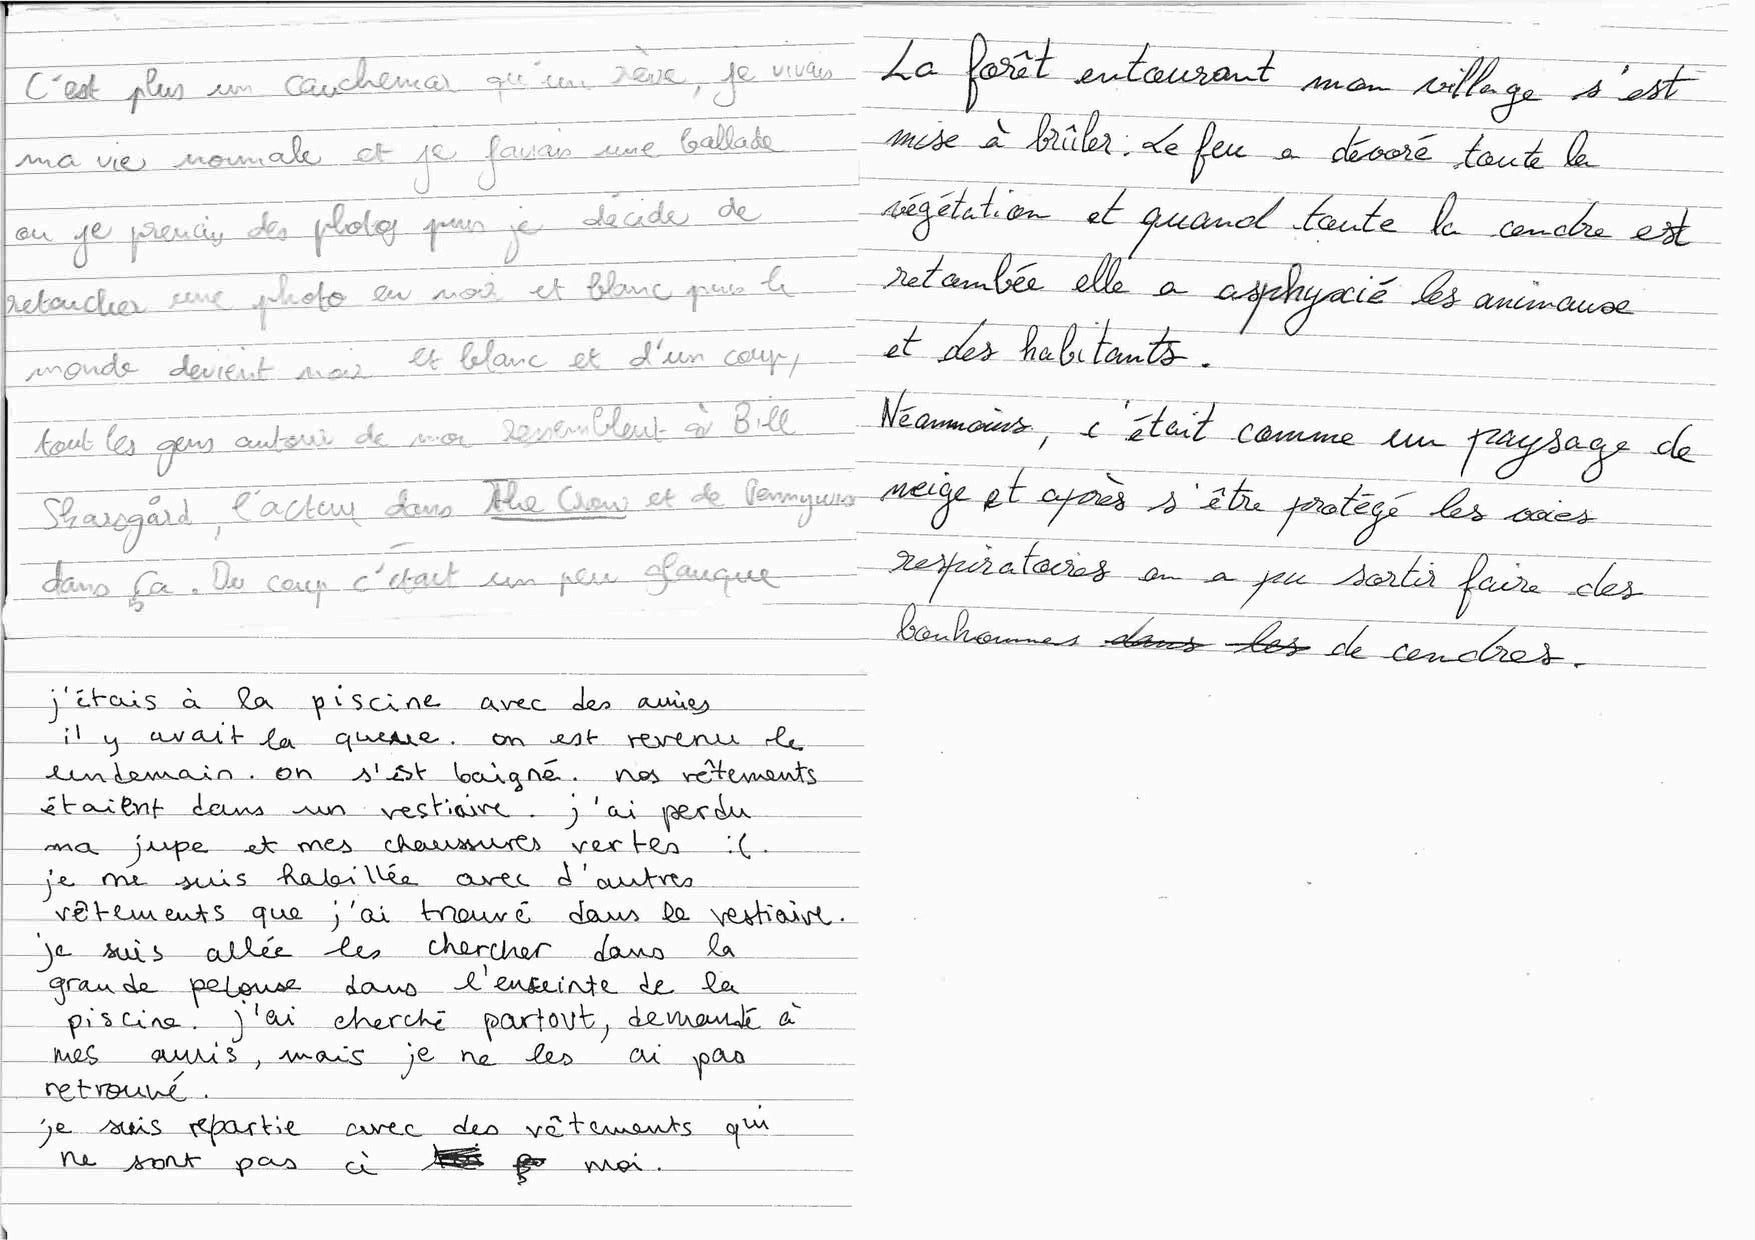 C'est plus un cauchemar qu'un rêve, je vivais
ma vie normale et je faisais une ballade
ou je prenais des photos puis je décide de
retoucher une photo en noir et blanc puis le
monde devient noir et blanc et d'un coup,
tout les gens autour de moi ressemblent à Bill
Skarsgård, l'acteur dans The Crow et de Pennywise
dans Ça. Du coup c'était un peu glauque
j'étais à la piscine avec des amies
il y avait la queue. on est revenu le
lendemain. on s'est baigné. nos vêtements
étaient dans un vestiaire. j'ai perdu
ma jupe et mes chaussures vertes :(.
je me suis habillée avec d'autres
vêtements que j'ai trouvé dans le vestiaire.
je suis allée les chercher dans la
grande pelouse dans l'enceinte de la
piscine. j'ai cherché partout, demandé à
mes amis, mais je ne les ai pas
retrouvé.
je suis repartie avec des vêtements qui
ne sont pas à moi.
La forêt entourant mon village s'est
mise à brûler. Le feu a dévoré toute la
végétation et quand toute la cendre est
retombée elle a asphyxié les animaux
et des habitants.
Néanmoins, c'était comme un paysage de
neige et après s'être protégé les voies
respiratoires on a pu sortir faire des
bonhommes dans les de cendres.